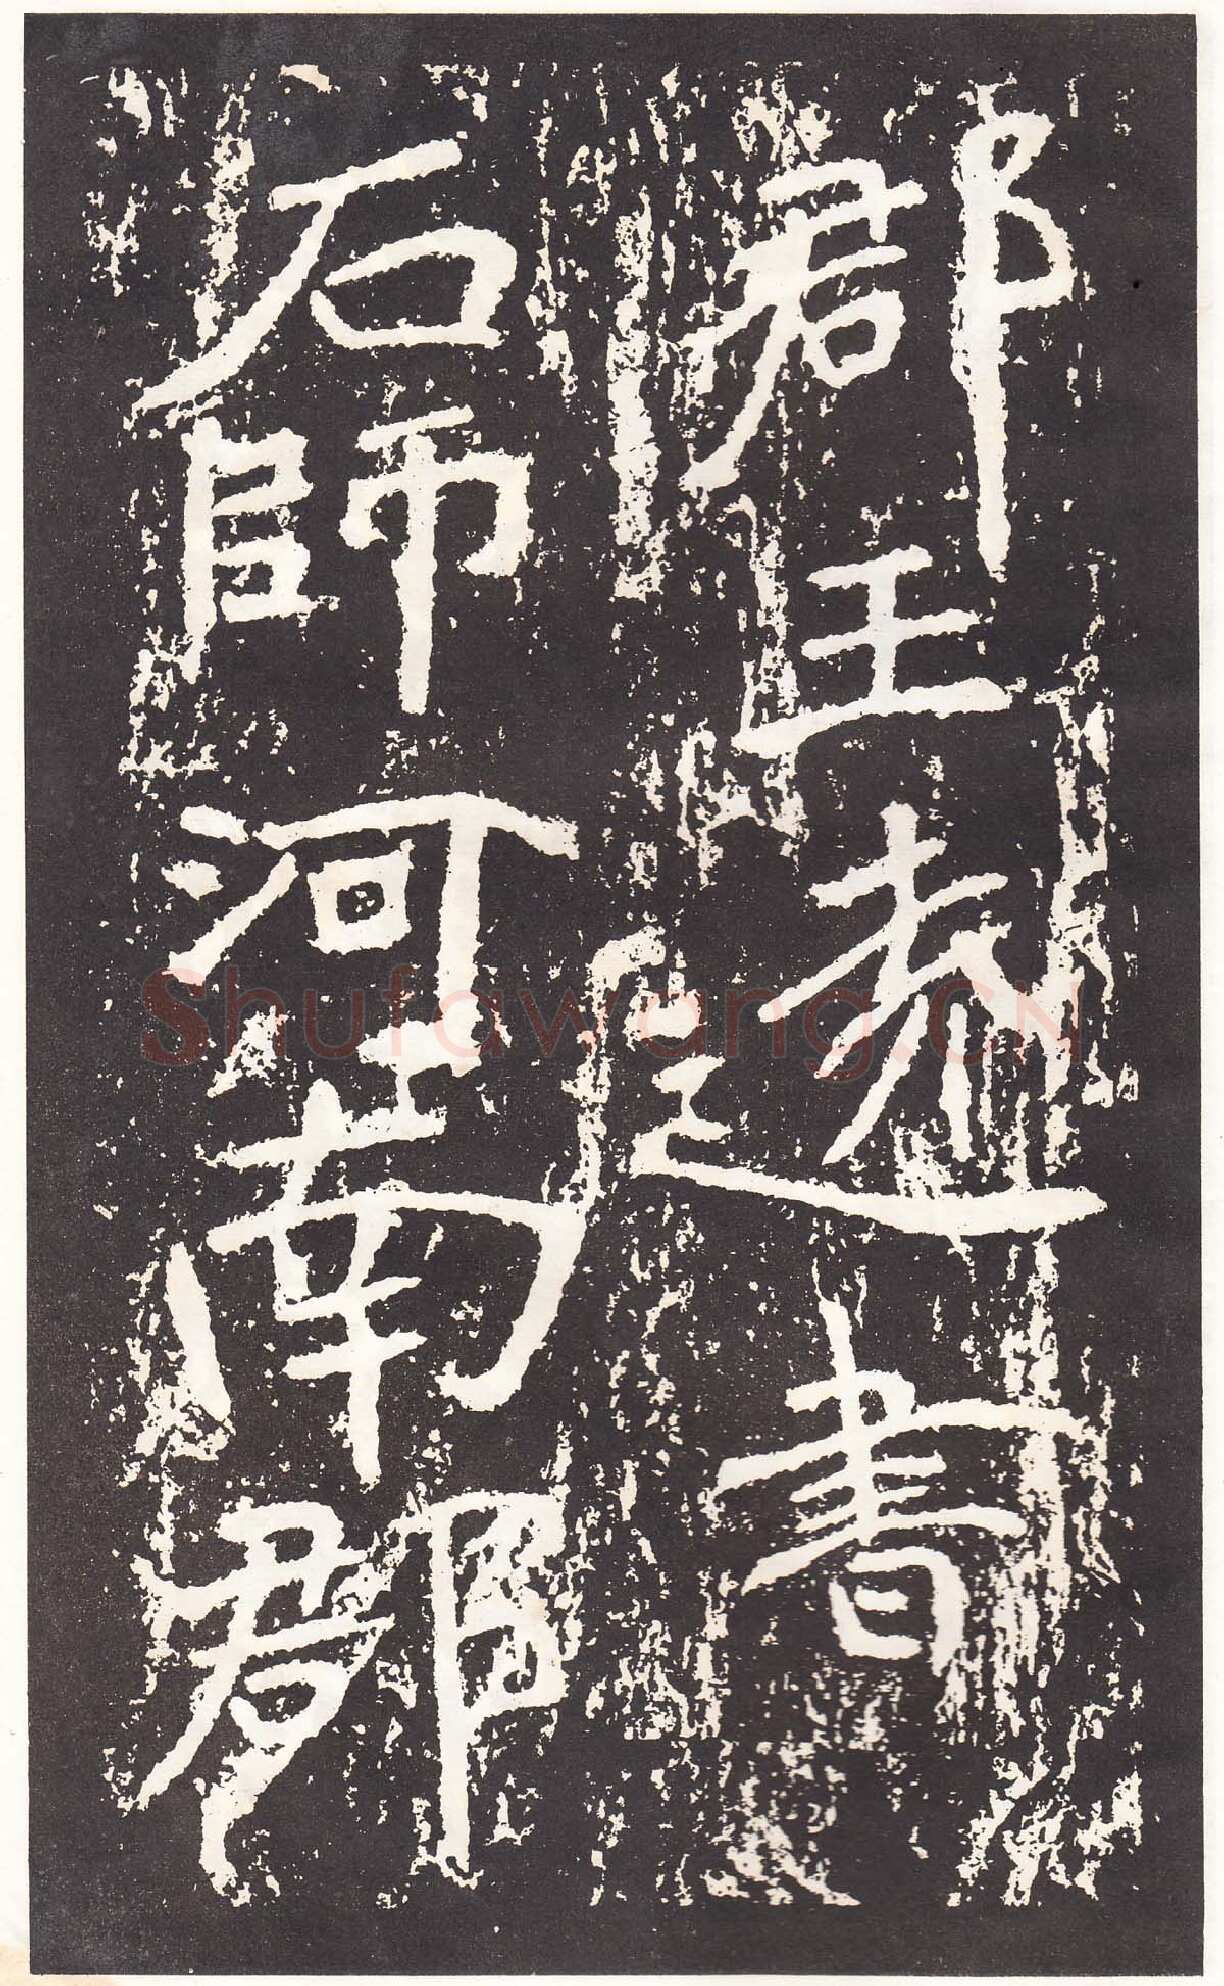 郡王遠書
石師河南郡
Shufawang.CN